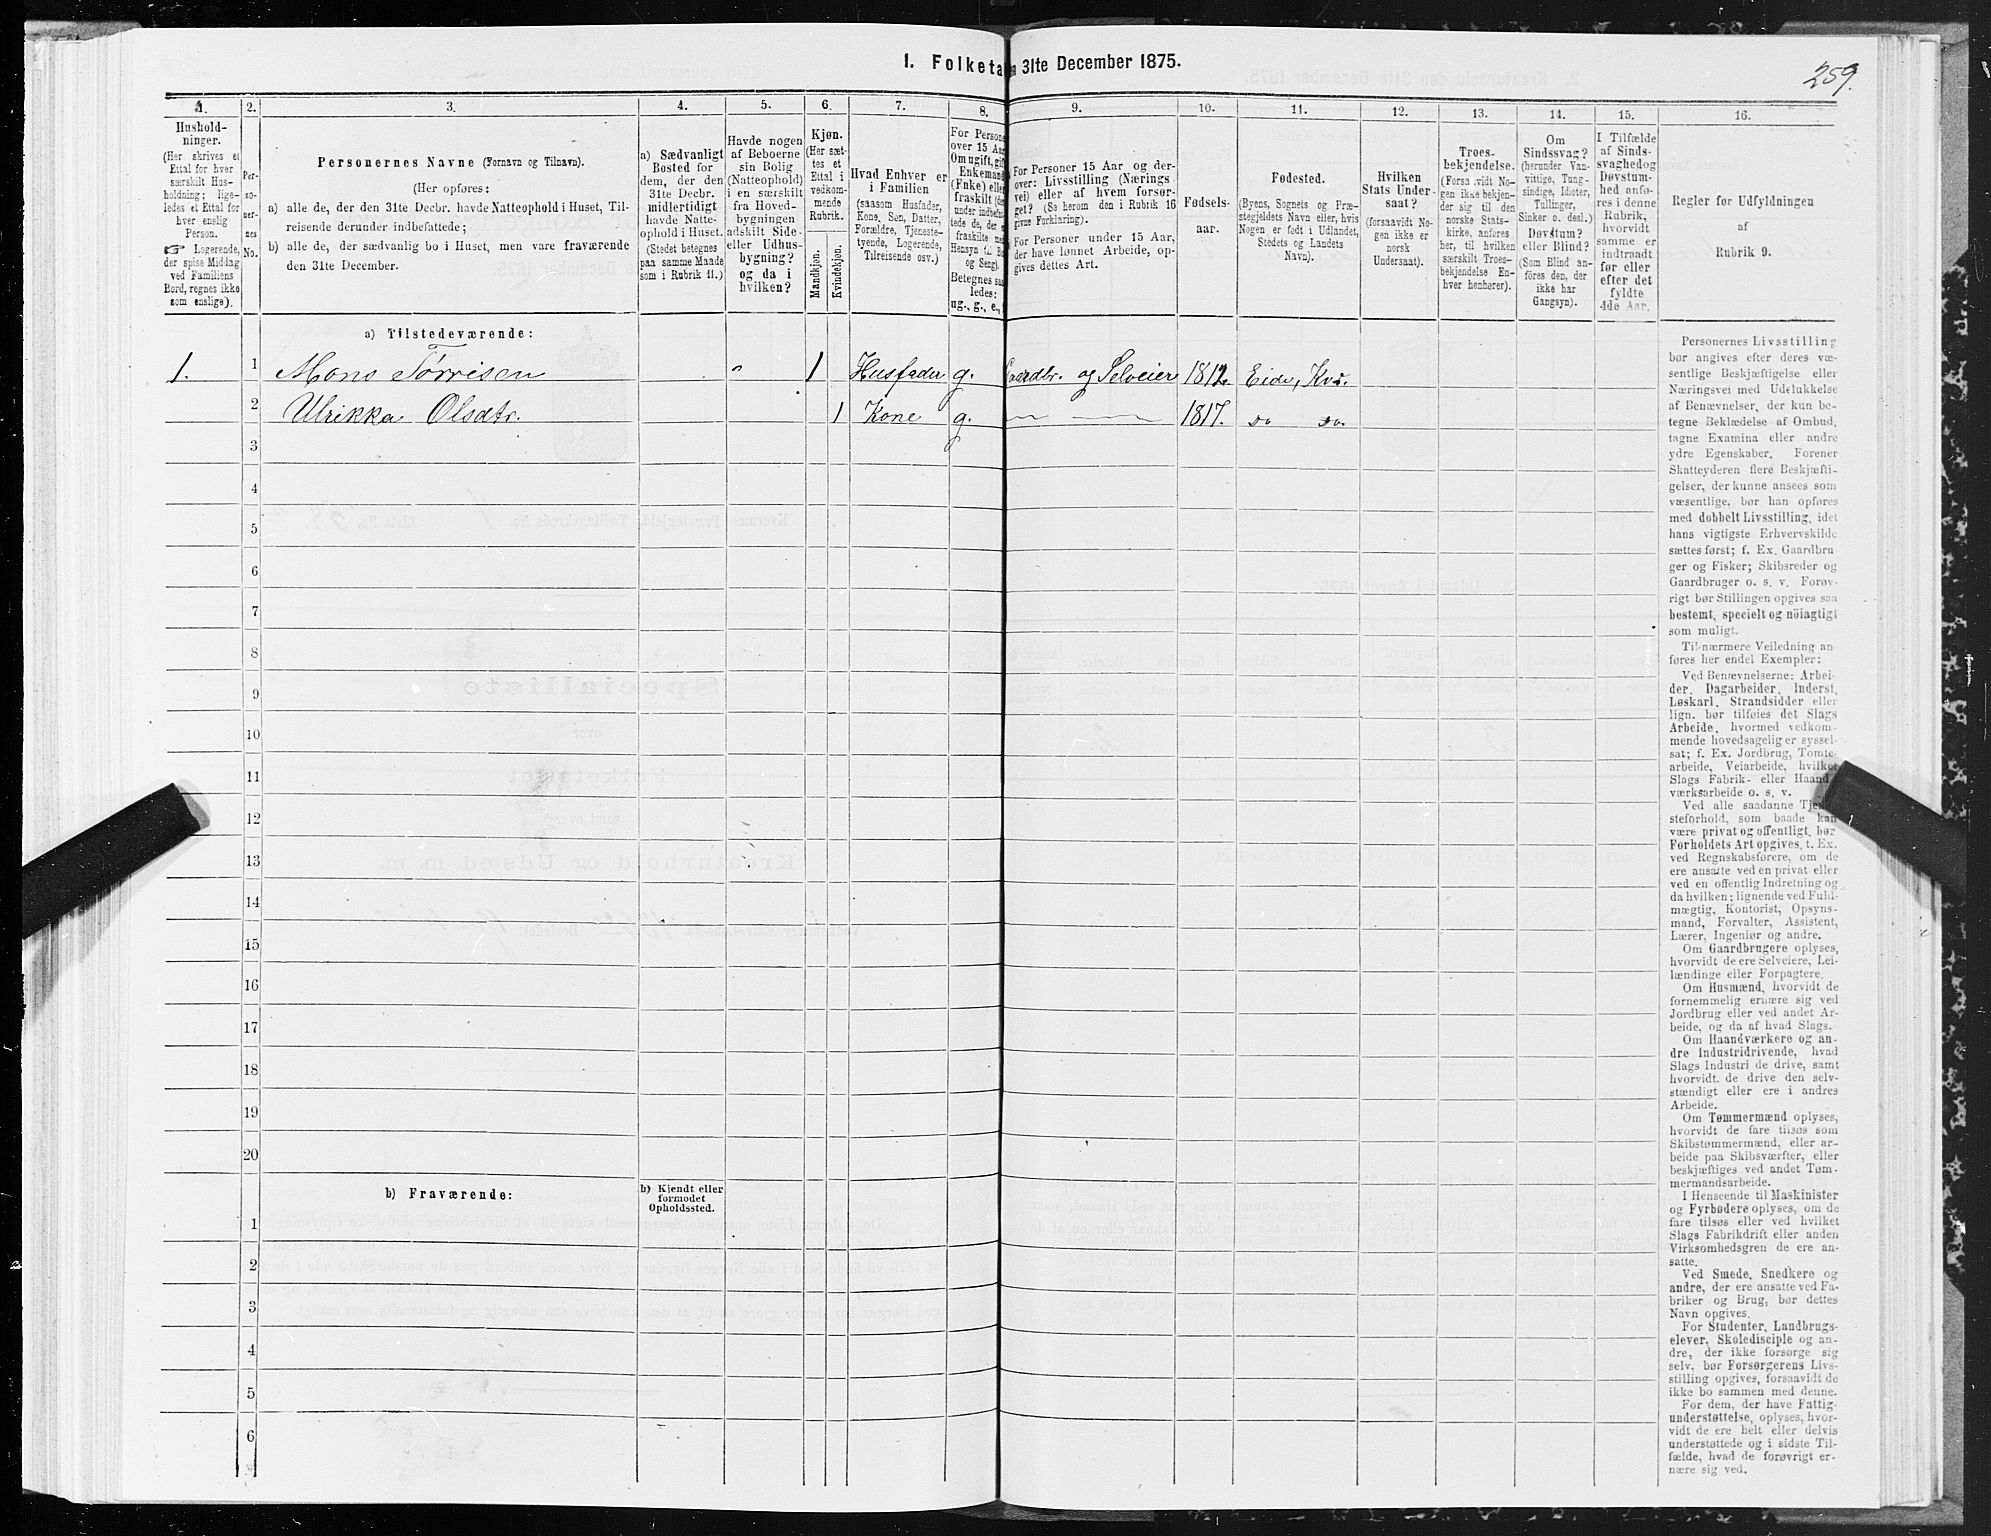 1. Folketa n 31te December 1875.
259.
1.
2.
3.
4.
5.
6.
7.
8.
9.
10.
11.
12.
13.
14.
15.
16.
Hushold-
ninger.
(Her skrives et
Ettal for hver
særskilt Hus-
holdning; lige-
ledes et Ettal for
hver enslig
Person.
☞ Logerende,
der spise Middag
ved Familiens
Bord, regnes ikke
som enslige).
Per-
so-
ner-
nes
No.
Personernes Navne (Fornavn og Tilnavn).
(Her opføres:
a) alle de, der den 31te Decbr. havde Natteophold i Huset, Til-
reisende derunder indbefattede;
b) alle de, der sædvanlig bo i Huset, men vare fraværende
den 31te December.
a) Sædvanligt
Bosted for
dem, der den
31te Decbr.
midlertidigt
havde Natte-
ophold i Huset.
(Stedet betegnes
paa samme Maade
som i Rubrik 11.)
Havde nogen
af Beboerne
sin Bolig
(Natteophold)
i en særskilt
fra Hoved-
bygningen
adskilt Side-
eller Udhus-
bygning?
og da i
hvilken?
Kjøn.
(Her sæt-
tes et
Ettal i
vedkom-
mende
Rubrik.
Mandkjøn.
Kvindekjøn.
Hvad Enhver er
i Familien
(saasom Husfader,
Kone, Søn, Datter,
Forældre, Tjeneste-
tyende, Logerende,
Tilreisende osv.)
For Persone
over 15 Aar
Om ugift, gift
Enkemand
(Enke) eller
fraskilt (de
under indbefat-
tede de, der ere
fraskilte med
Hensyn til Bo
og Seng).
Betegnes saa
ledes:
ug., g., e.,
For Personer 15 Aar og der-
over: Livsstilling (Nærings
vei) eller af hvem forsør-
get? (Se herom den i Rubrik 16
givne Forklaring).
For Personer under 15 Aar,
der have lønnet Arbeide, op-
gives dettes Art.
Fødsels-
aar.
Fødested.
(Byens, Sognets og Præ-
stegjeldets Navn eller, hvis
Nogen er født i Udlandet,
Stedets og Landets
Navn).
Hvilken
Stats Under-
saat?
(forsaavidt No-
gen ikke er
norsk
Undersaat).
Troes-
bekjendelse.
(Forsaavidt No-
gen ikke bekjen-
der sig til den
norske Stats-
kirke, anføres
her, til hvilken
særskilt Troes-
bekjendelse En-
hver henhører).
Om
Sindssvag?
(herunder Van-
vittige, Tung-
sindige, Idioter,
Tullinger,
Sinker o. desl.)
Døvstum?
eller Blind?
(Som Blind an-
føres den, der
ikke har
Gangsyn).
I Tilfælde
af Sinds-
svaghed og
Døvstum-
hed anfø-
res i denne
Rubrik,
hvorvidt
samme er
indtraadt
før eller
efter det
fyldte
4de Aar.
Regler for Udfyldningen
af
Rubrik 9.
a) Tilstedeværende:
1. 1 Mons Tørrisen " 1 Husfader g. Gaardbr. og Selveier 1812. Eide, Kvs.
2 Ulrikka Olsdtr. 1 Kone g. — — 1817. do do.
3
4
5
6
7
8
9
10
11
12
13
14
15
16
17
18
19
20
b) Fraværende:
b) Kjendt eller
formodet
Opholdssted.
1
2
3
4
5
6
Personernes Livsstilling
bør angives efter deres væ-
sentlige Beskjæftigelse eller
Næringsvei med Udelukkelse
af Benævnelser, der kun be-
tegne Beklædelse af Ombud,
tagne Examina eller andre
ydre Egenskaber. Forener
Skatteyderen flere Beskjæfti-
gelser, der kunne ansees som
væsentlige, bør han opføres
med dobbelt Livsstilling, idet
hans vigtigste Erhvervskilde
sættes først; f. Ex. Gaardbru
ger og Fisker; Skibsreder og
Gaardbruger o. s. v. Forøv-
rigt bør Stillingen opgives saa
bestemt, specielt og nöiagtigt
som muligt.
Til nærmere Veiledning an-
føres her endel Exempler:
Ved Benævnelserne: Arbei-
der, Dagarbeider, Inderst,
Løskarl, Strandsidder eller
lign. bør tilføies det Slags
Arbeide, hvormed vedkom-
mende hovedsagelig er syssel-
sat; f. Ex. Jordbrug, Tomte-
arbeide, Veiarbeide, hvilket
Slags Fabrik- eller Haand-
værksarbeide o. s. v.
Ved alle saadanne Tjene-
steforhold, som baade kan
være privat og offentligt, bør
Forholdets Art opgives, t. Ex.
ved Regnskabsførere, om de
ere ansatte ved en privat eller
ved en offentlig Indretning og
da hvilken; lignende ved Fuld-
mægtig, Kontorist, Opsyns-
mand, Forvalter, Assistent,
Lærer, Ingeniør og andre.
Om Gaardbrugere oplyses,
hvorvidt de ere Selveiere, Lei-
lændinge eller Forpagtere.
Om Husmænd, hvorvidt de
fornemmelig ernære sig ved
Jordbrug eller ved andet Ar-
beide, og da af hvad Slags.
Om Haandværkere og an-
dre Industridrivende, hvad
Slags Industri de drive, samt
hvorvidt de drive den selv-
stændigt eller ere i andres
Arbeide.
Om Tømmermænd oplyses,
hvorvidt de fare tilsøs som
Skibstømmermænd, eller ar-
beide paa Skibsværfter, eller
beskjæftiges ved andet Tøm-
mermandsarbeide.
I Henseende til Maskinister
og Fyrbødere oplyses, om de
fare tilsøs eller ved hvilket
Slags Fabrikdrift eller anden
Virksomhedsgren de ere an-
satte.
Ved Smede, Snedkere og
andre, der ere ansatte ved Fa-
briker og Brug, bør dettes
Navn opgives.
For Studenter, Landbrugs-
elever, Skoledisciple og an-
dre, der ikke forsørge sig
selv, bør Forsørgerens Livs-
stilling opgives, forsaavidt de
ikke bo sammen med denne.
For dem, der have Fattig-
understøttelse, oplyses, hvor-
vidt de ere helt eller delvis
understøttede og i sidste Til-
fælde, hvad de forøvrigt er-
nære sig ved.